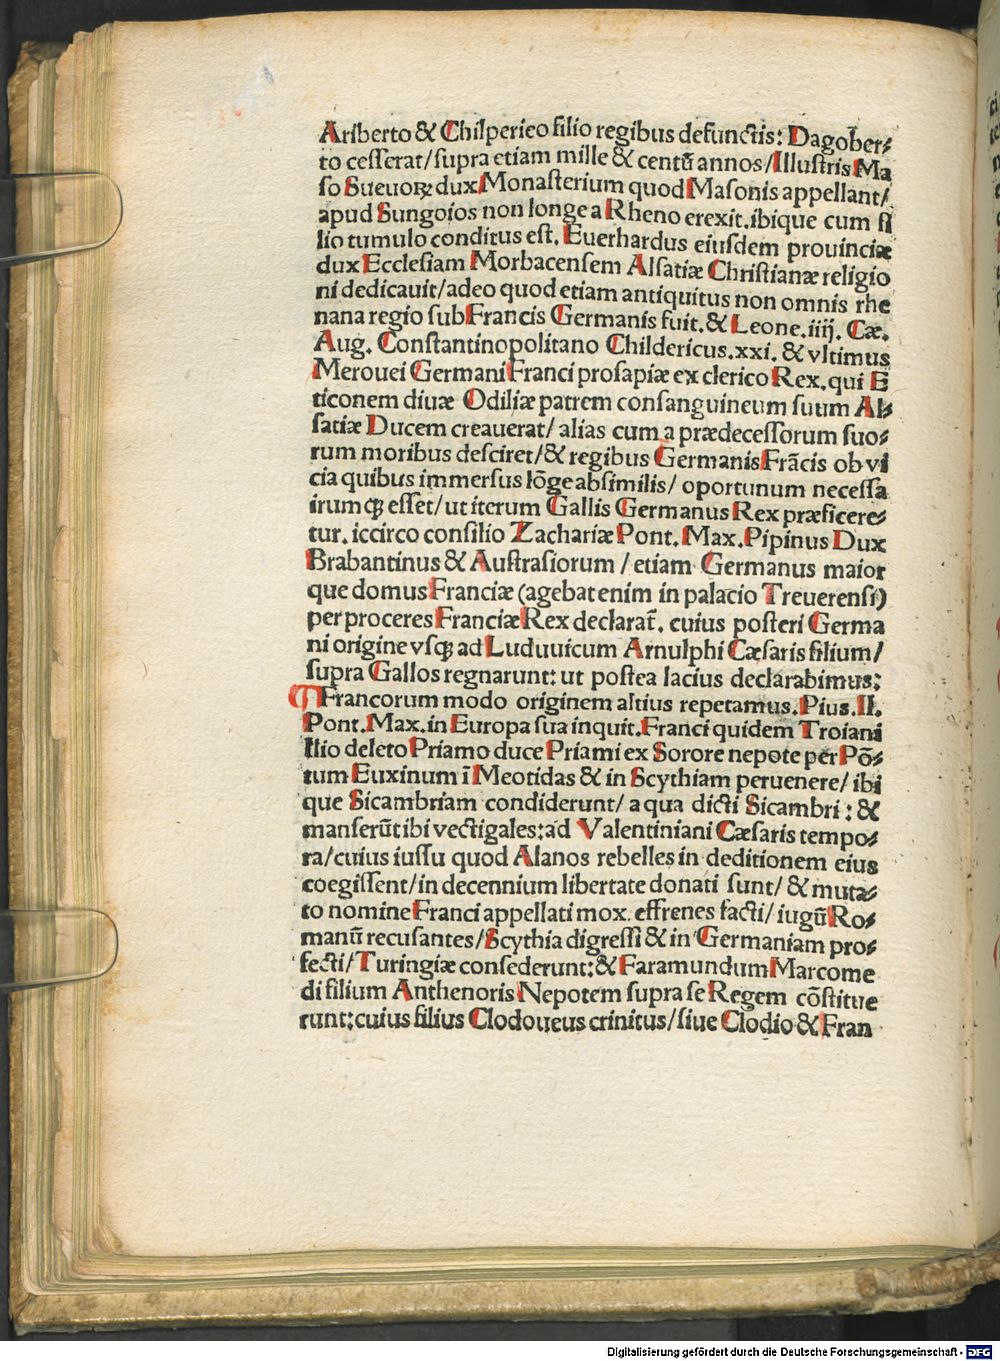 Ariberto & Chilperico filio regibus defunctis: Dagober⸗
to cesserat/supra etiam mille & centū annos/Illustris Ma
so Sueuoꝝ dux Monasterium quod Masonis appellant/
apud Sungoios non longe a Rheno erexit.ibique cum fi
lio tumulo conditus est. Euerhardus eiusdem prouinciæ
dux Ecclesiam Morbacensem Alsatiæ Christianæ religio
ni dedicauit/adeo quod etiam antiquitus non omnis rhe
nana regio sub Francis Germanis fuit.& Leone.iiij. Cæ.
Aug. Constantinopolitano Childericus.xxi. & vltimus
Merouei Germani Franci prosapiæ ex clerico Rex.qui E
ticonem diuæ Odiliæ patrem consanguineum suum Al⸗
satiæ Ducem creauerat/ alias cum a prædecessorum suo⸗
rum moribus desciret/& regibus Germanis Frācis ob vi
cia quibus immersus lōge absimilis/ oportunum necessa
irumqꝫ esset/ut iterum Gallis Germanus Rex præficere⸗
tur. iccirco consilio Zachariæ Pont. Max.Pipinus Dux
Brabantinus & Austrasiorum / etiam Germanus maior
que domus Franciæ (agebat enim in palacio Treuerensi)
per proceres Franciæ Rex declarat̄. cuius posteri Germa
ni origine vsqꝫ ad Luduuicum Arnulphi Cæsaris filium/
supra Gallos regnarunt: ut postea lacius declarabimus:
¶ Francorum modo originem altius repetamus.Pius.II.
Pont.Max.in Europa sua inquit.Franci quidem Troiani
Ilio deleto Priamo duce Priami ex Sorore nepote per Pō⸗
tum Euxinum ī Meotidas & in Scythiam peruenere/ ibi
que Sicambriam condiderunt/ a qua dicti Sicambri : &
manserūt ibi vectigales:ad Valentiniani Cæsaris tempo⸗
ra/cuius iussu quod Alanos rebelles in deditionem eius
coegissent/in decennium libertate donati sunt/ & muta⸗
to nomine Franci appellati mox effrenes facti/ iugū Ro⸗
manū recusantes/Scythia digressi & in Germaniam pro⸗
fecti/Turingiæ consederunt:& Faramundum Marcome
di filium Anthenoris Nepotem supra se Regem cōstitue
runt:cuius filius Clodoueus crinitus/siue Clodio & Fran
Digitalisierung gefördert durch die Deutsche Forschungsgemeinschaft - DFG